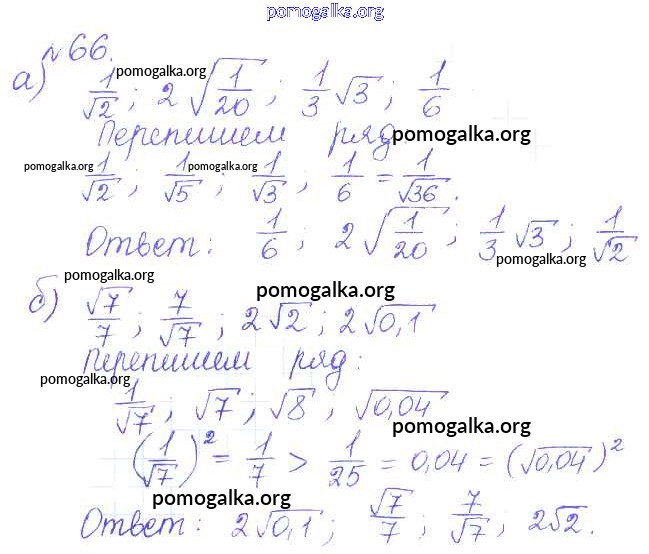 pomogalka.org
№66.
а) 1/√2; pomogalka.org 2√(1/20); 1/3 √3; 1/6
Перепишем ряд pomogalka.org
pomogalka.org 1/√2; 1/√5; pomogalka.org 1/√3; 1/6 = 1/√36.
Ответ: 1/6; 2√(1/20); 1/3 √3; 1/√2
pomogalka.org
pomogalka.org
б) √7/7; 7/√7; 2√2; 2√0,1
pomogalka.org
Перепишем ряд:
pomogalka.org
1/√7; √7; √8; √0,04
pomogalka.org
(1/√7)² = 1/7 > 1/25 = 0,04 = (√0,04)²
pomogalka.org
pomogalka.org
Ответ: 2√0,1; √7/7; 7/√7; 2√2.
pomogalka.org